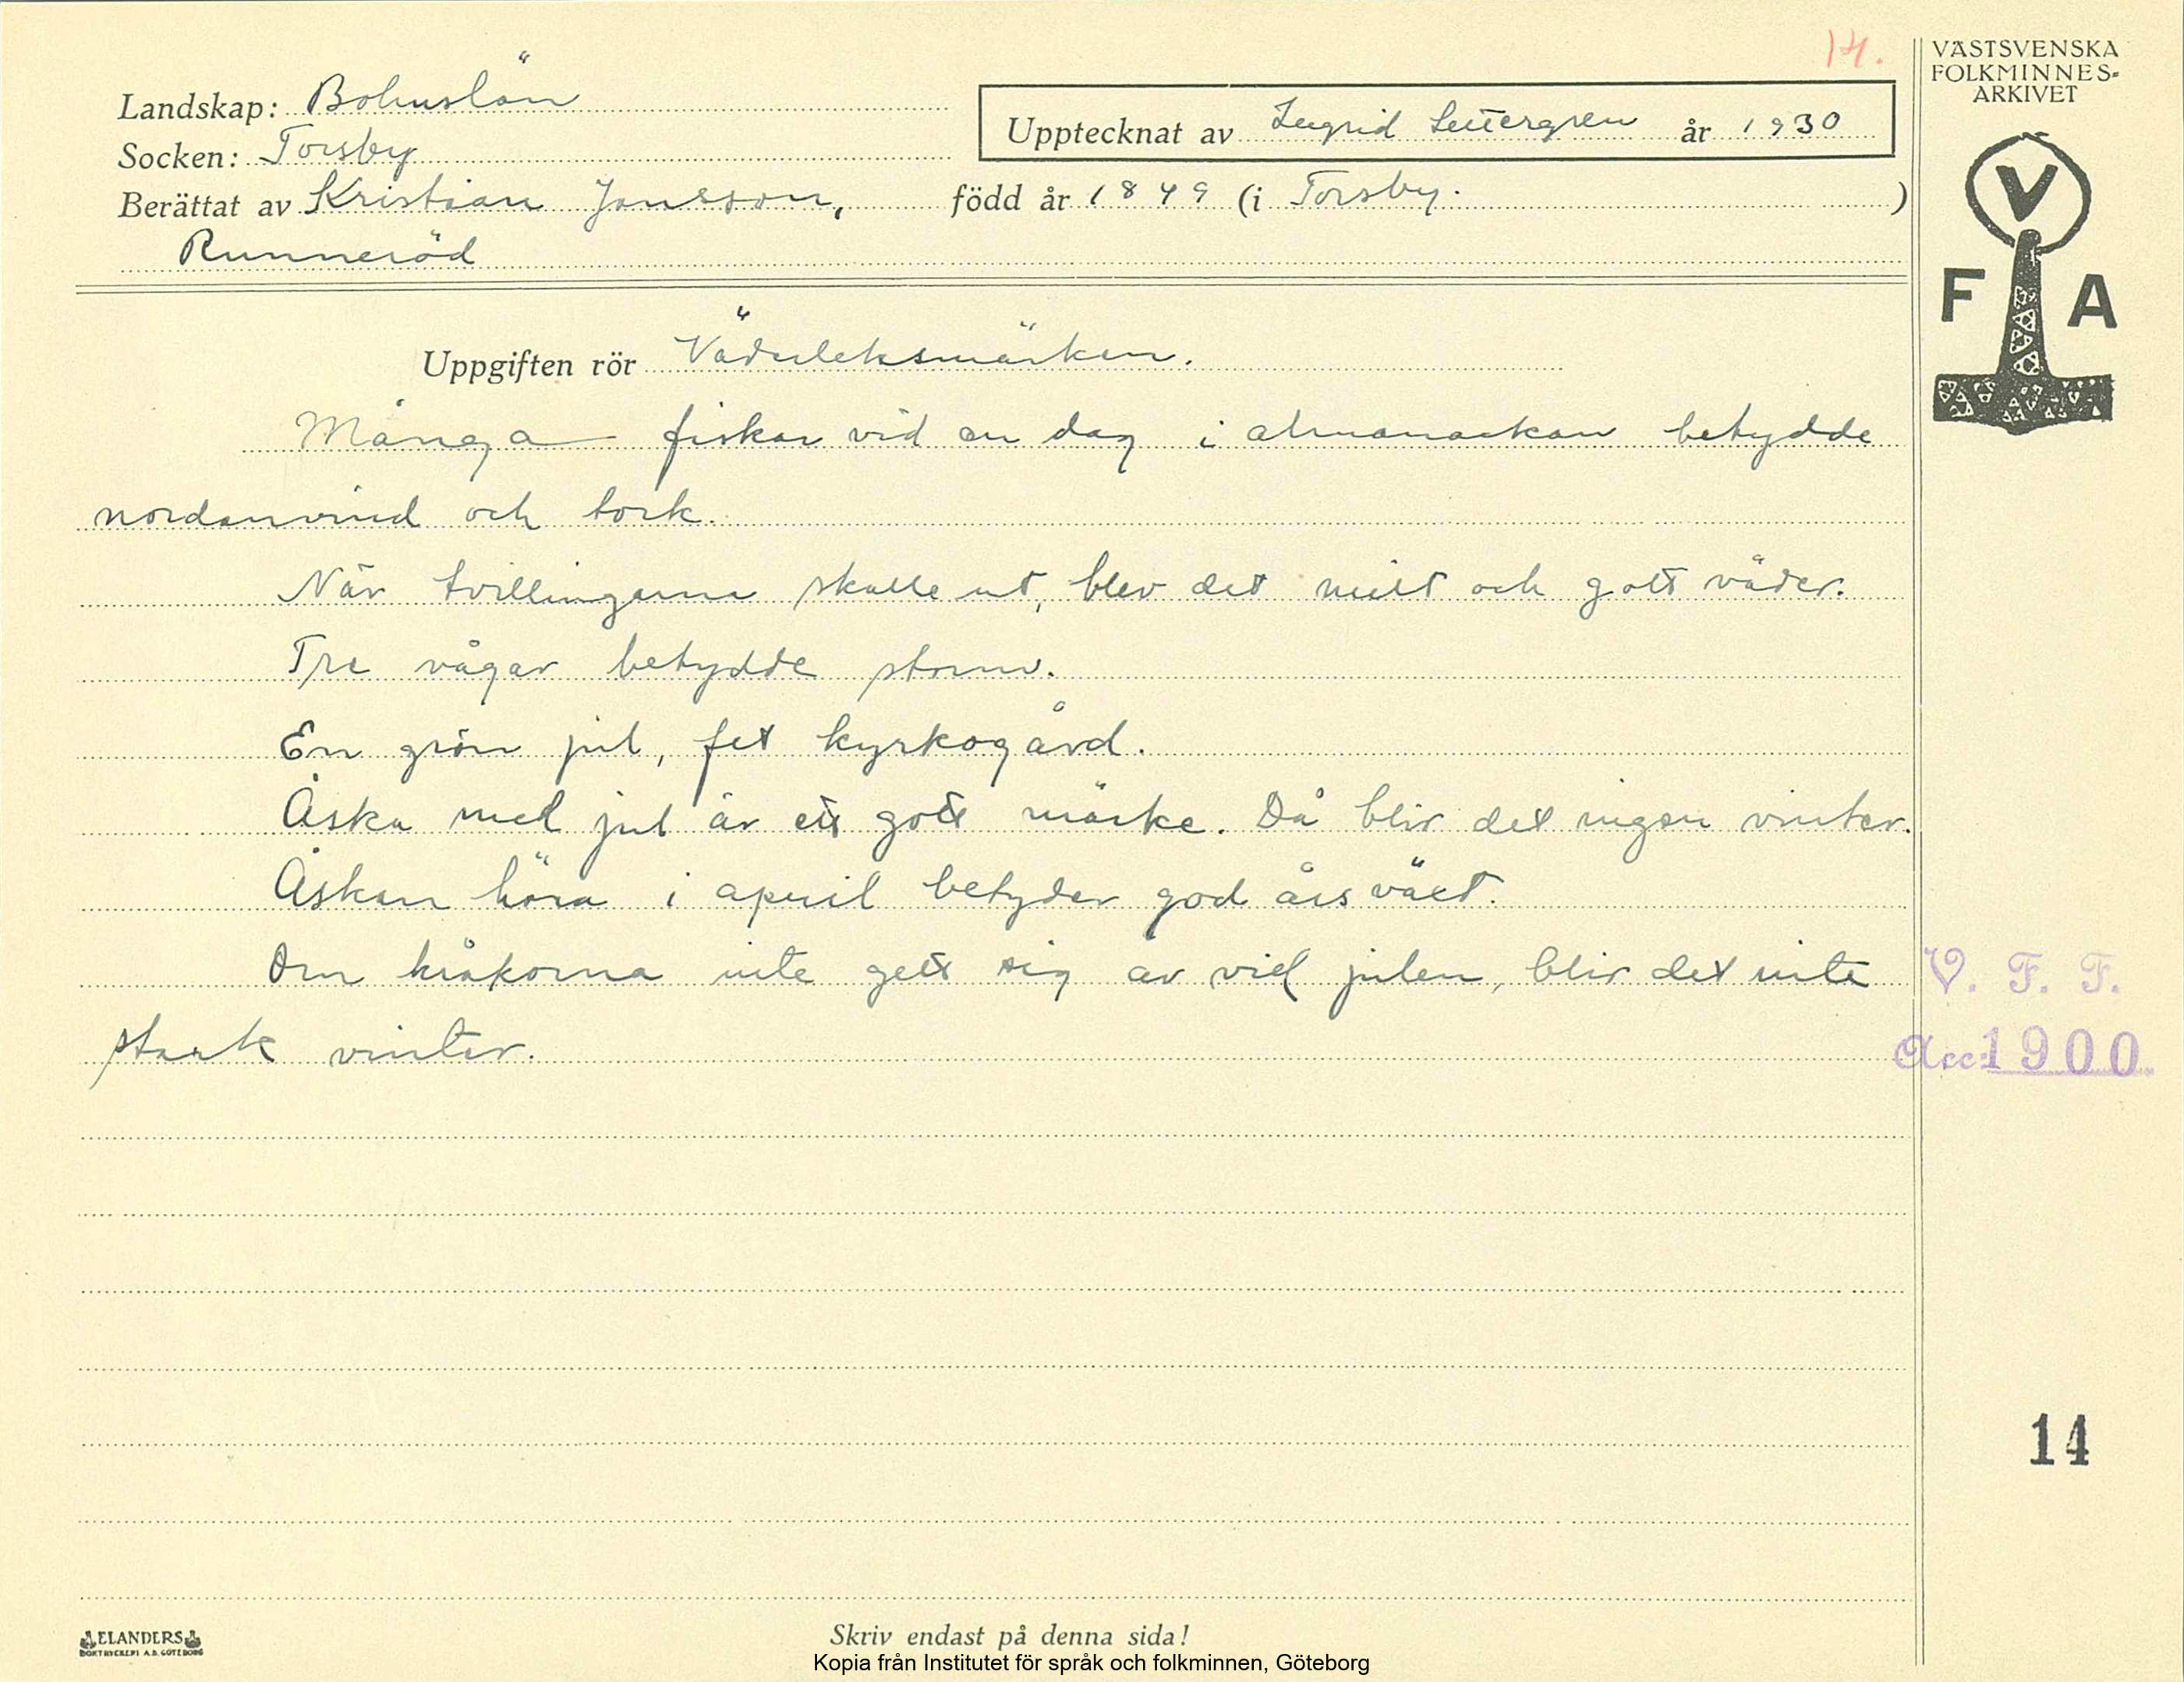 14.
Landskap: Bohuslän
Socken: Torsby
Upptecknat av Ingrid Settergren år 1930
Berättat av Kristian Jonsson, född år 1849 (i Torsby. )
Runneröd
Uppgiften rör Väderleksmärken.
Många fiskar vid en dag i almanackan betydde
nordanvind och tork.
När tvillingarna skulle ut, blev det milt och gott väder.
Tre vågar betydde storm.
En grön jul, fet kyrkogård.
Åska med jul är ett gott märke. Då blir det ingen vinter.
Åskan höra i april betyder god årsväxt.
Om kråkorna inte gett sig av vid julen, blir det inte
stark vinter.
VÄSTSVENSKA
FOLKMINNES-
ARKIVET
V
F A
V. F. F.
Acc: 1900
14
ELANDERS
BOKTRYCKERI A.B. GÖTEBORG
Skriv endast på denna sida!
Kopia från Institutet för språk och folkminnen, Göteborg